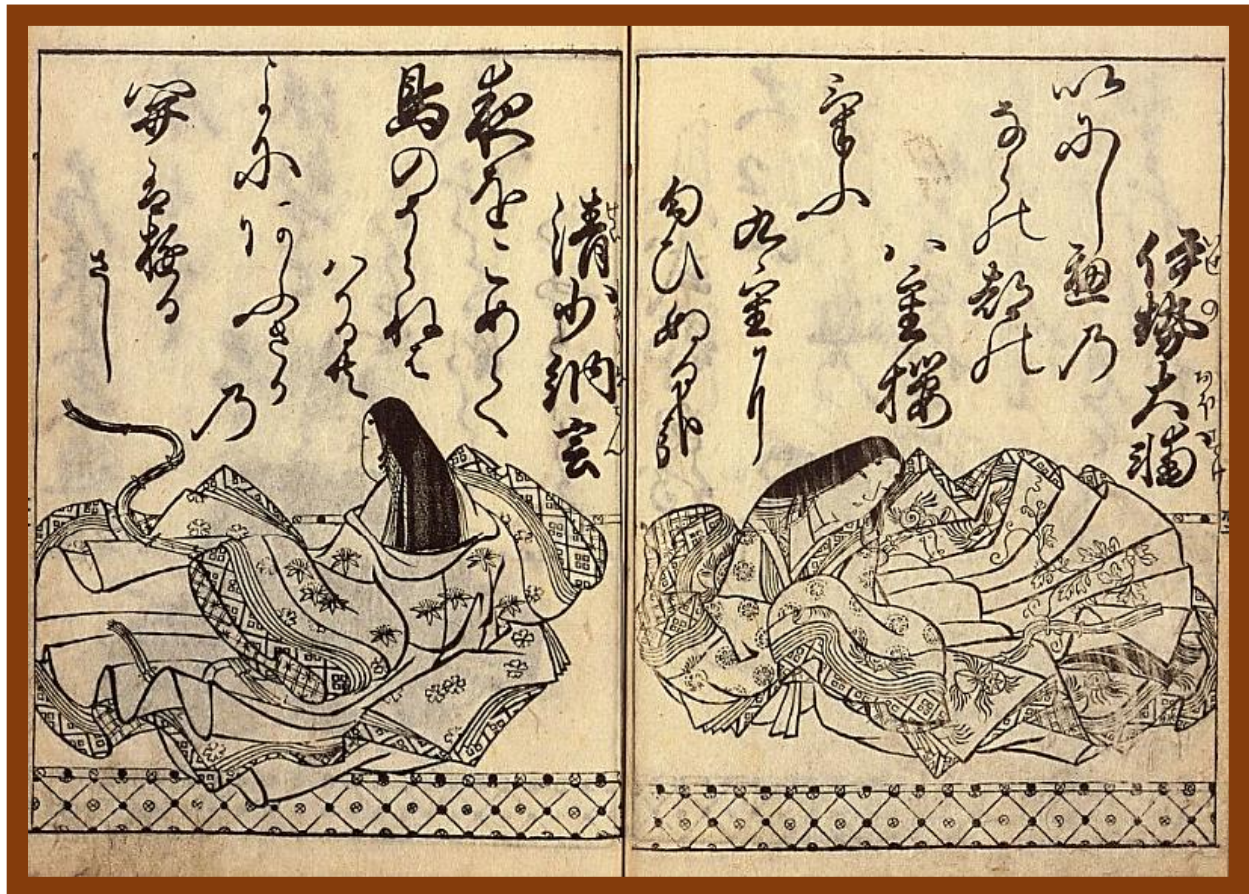 伊勢大輔
いにしへの
ならの都の
八重櫻
けふ
九重に
匂ひぬる哉
清少納言
夜をこめて
鳥のそらねは
はかるとも
よにあふさか
乃
関はゆる
さし